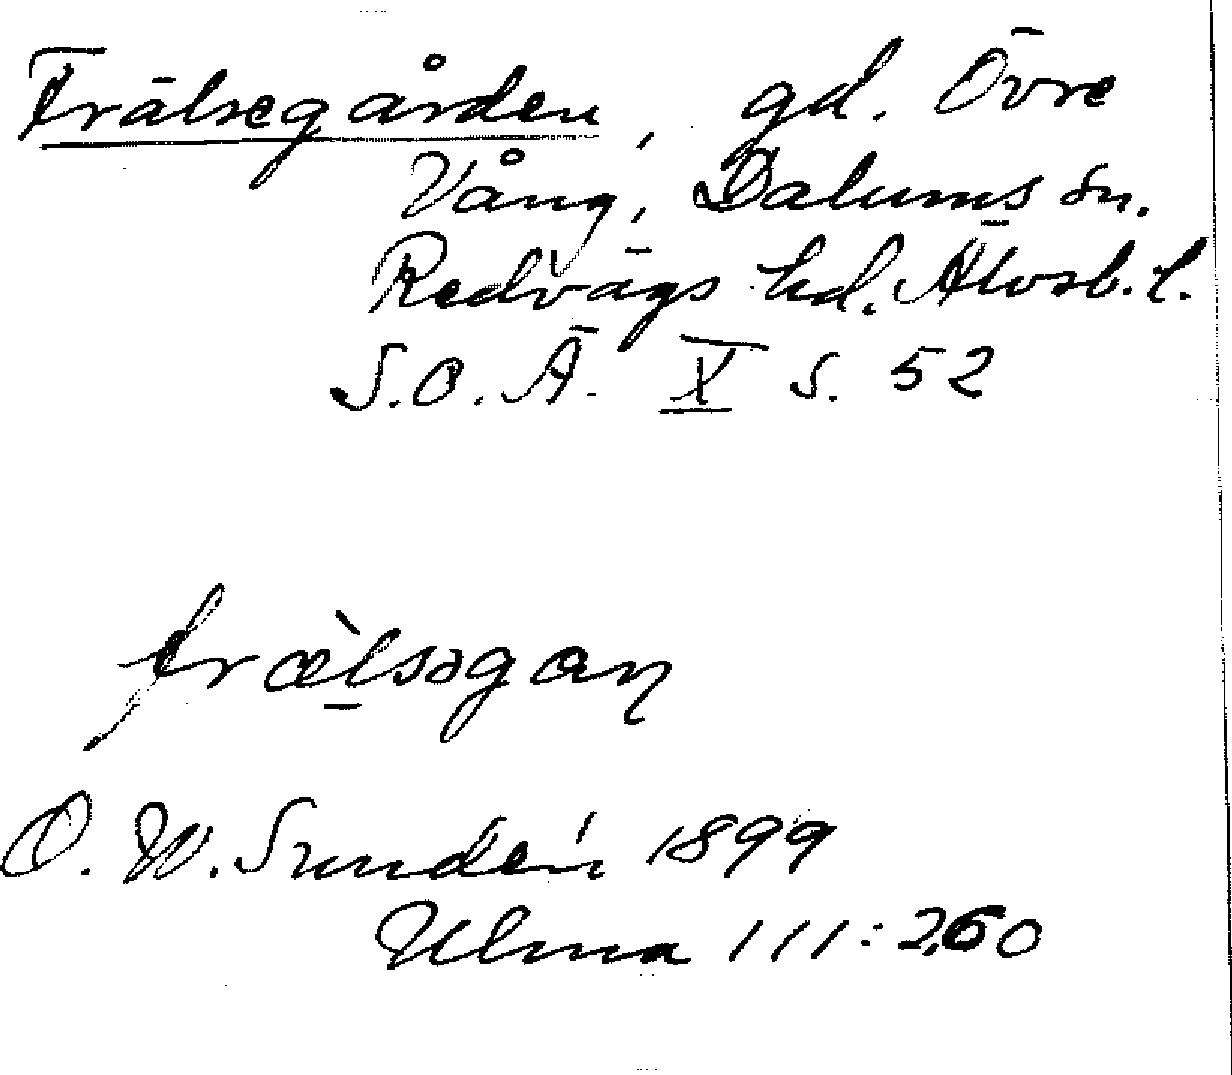 Frälsegården, gd. Övre
Vång, Dalums sn.
Redvägs hd. Älvsb. l.
S.O.Ä. X s. 52
fræ̀lsəgaɳ
O. W. Sundén 1899
Ulma 111:260